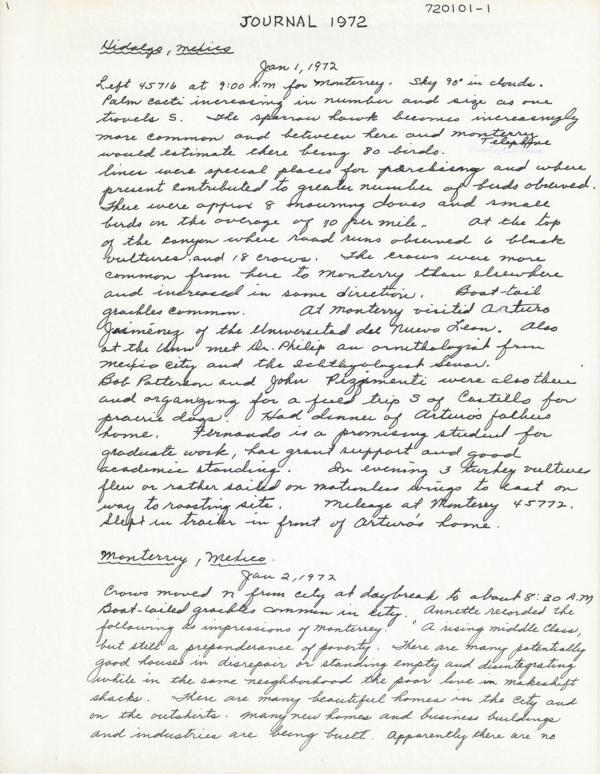 JOURNAL 1972
720101-1
Hidalgo, Mexico
Jan 1, 1972
Left 45716 at 9:00 A.M for Monterrey. Sky 90° in clouds.
Palm cacti increasing in number and size as one
travels S. The sparrow hawk becomes increasingly
more common and between here and Monterrey
would estimate there being 80 birds. Telephone
lines were special places for perching and where
present contributed to greater number of birds observed.
There were approx 8 mourning doves and small
birds on the average of 10 per mile. At the top
of the canyon where road runs observed 6 black
vultures and 18 crows. The crows were more
common from here to Monterrey than elsewhere
and increased in same direction. Boat-tail
grackles common. At Monterrey visited Arturo
Jiménez of the Universitad del Nuevo Leon. Also
at the Univ met Dr. Philip an ornithologist from
Mexico City and the Ichthyologist
Bob Patterson and John Pizzimenti were also there
and organizing for a field trip S of Castillo for
prairie dogs. Had dinner of Arturo's fathers
home. Fernando is a promising student for
graduate work, has grant support and good
academic standing. In evening 3 turkey vultures
flew or rather sailed on motionless wings to east on
way to roosting site. Mileage at Monterey 45772.
Slept in trailer in front of Arturo's home.
Monterrey, Mexico.
Jan 2, 1972
Crows moved N from city at daybreak to about 8:30 A.M
Boat-tailed grackles common in city. Annette recorded the
following as impressions of Monterrey. "A rising middle class,
but still a preponderance of poverty. There are many potentially
good houses in disrepair or standing empty and disintegrating
while in the same neighborhood the poor live in makeshift
shacks. There are many beautiful homes in the city and
on the outskirts. Many new homes and business buildings
and industries are being built. Apparently there are no